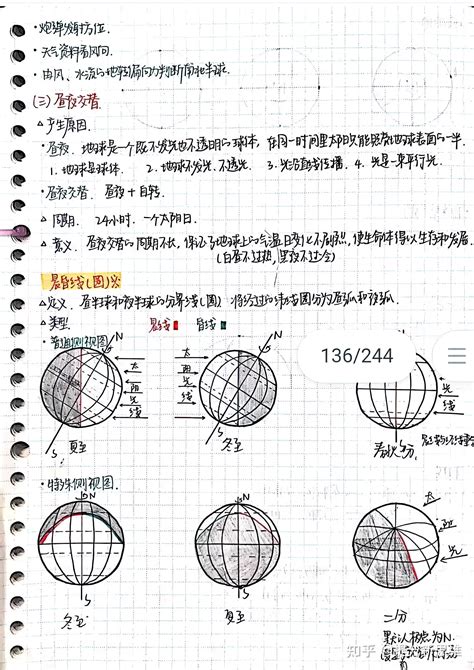 ·炮弹, 射方位.
·天气资料看风向.
·由风、水流与地转偏向力判断南北半球.
(三) 昼夜交替.
△产生原因.
·昼夜. 地球是一个既不发光也不透明的球体, 在同一时间里太阳只能照亮地球表面的一半
1. 地球是球体. 2. 地球不发光. 不透光. 3. 光沿直线传播. 4. 光是一束平行光.
·昼夜交替. 昼夜+自转.
△周期. 24小时. 一个太阳日.
△意义. 昼夜交替的周期不长, 保证了地球上的气温日变化不剧烈, 使生命体得以生存和发展.
(白昼不过热, 黑夜不过冷)
晨昏线(圈)※
△定义. 昼半球和夜半球的分界线(圈) 将经过的纬线圈分为昼弧和夜弧.
△类型. 晨线 昏线
·普通侧视图
N N
136/244
太 太
阳 阳
光 光 光
线 线 线
S S
夏至 冬至 春秋二分
·特殊侧视图.
N N
太
阳
光
S S
冬至 夏至 二分
默认极点为N.
知乎